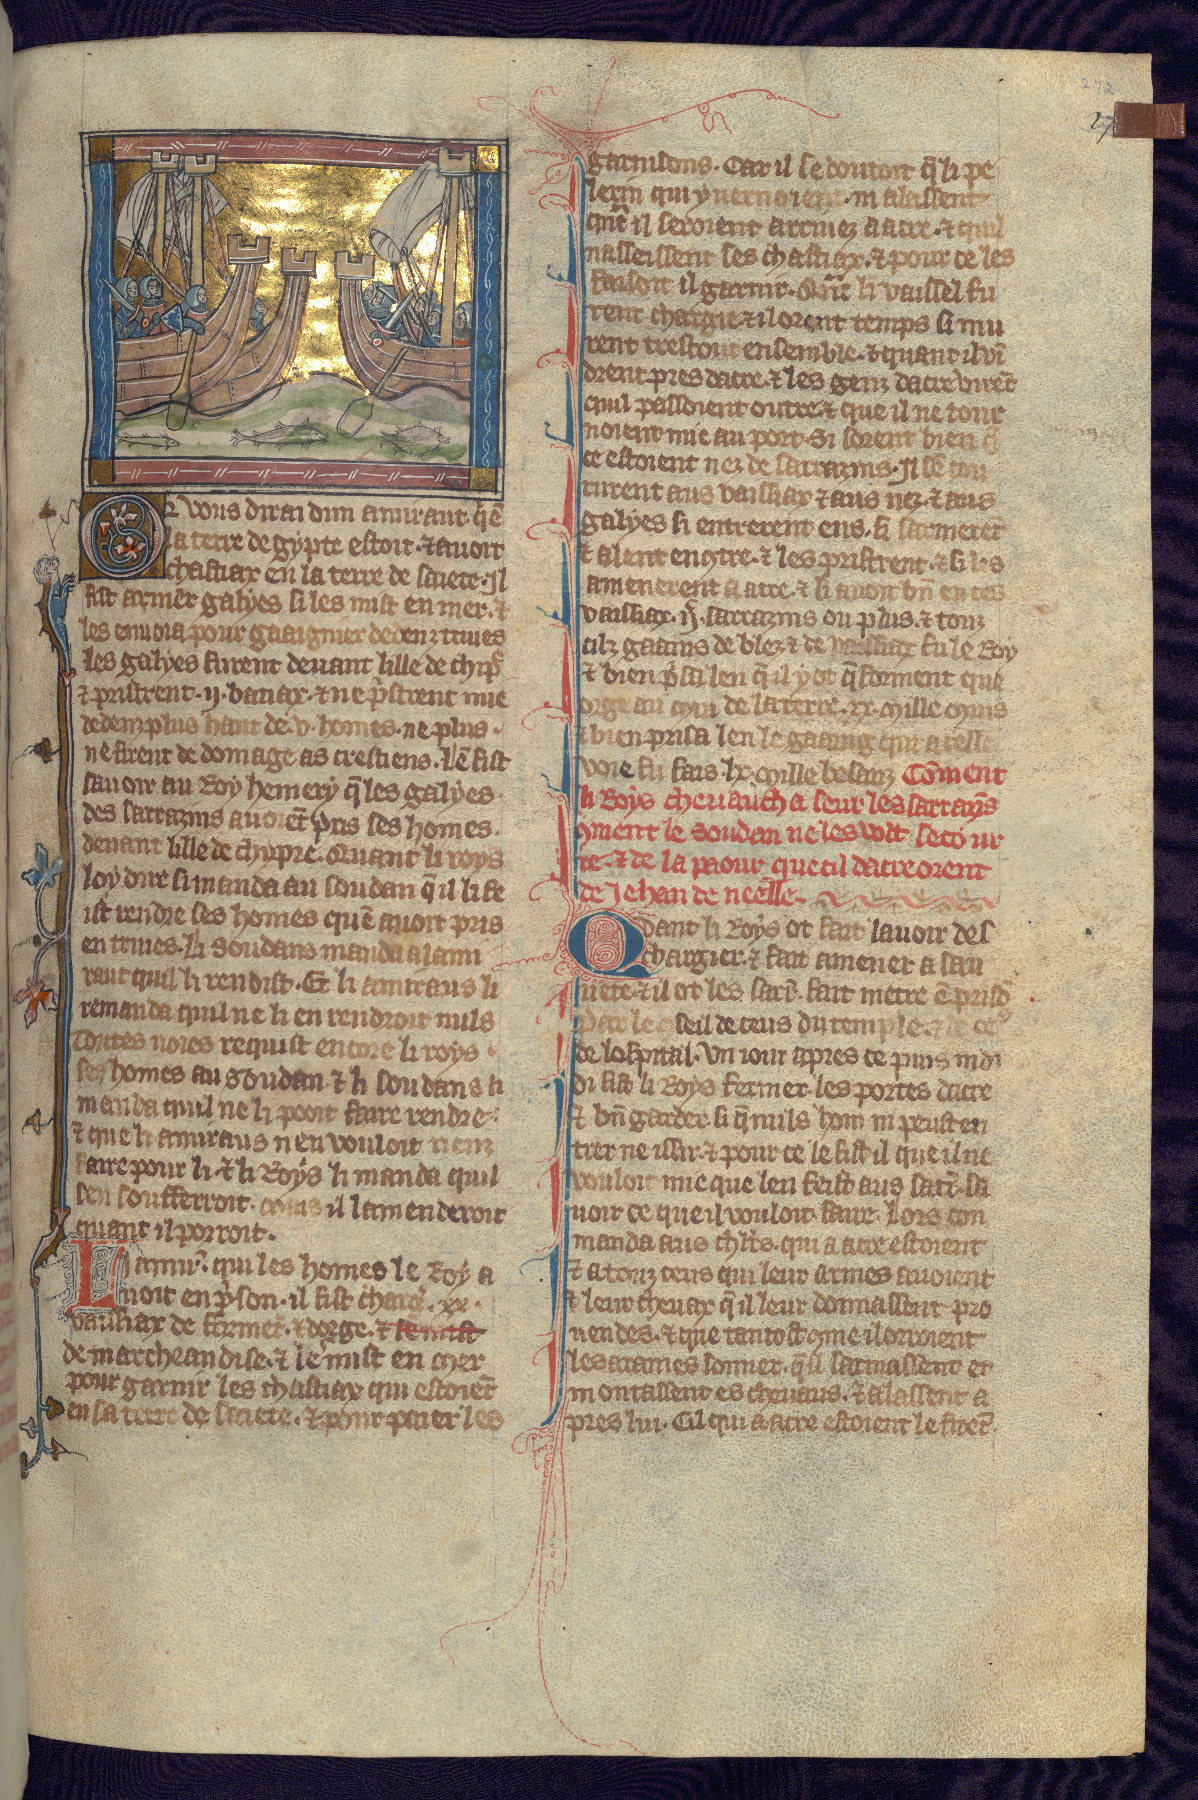 272
27
Or vous dirai dun amiraut. qͥ ē
la terre de gypte estoit. ⁊ avoit
chastiax en la terre de saiete. Il
fist armer galyes si les mist en mer. ⁊
les envoia pour gaaignier dedenz trives
les galyes furent devant lille de chip̄
⁊ pristrent .ij. batiax. ⁊ ne p̄strent mie
dedenz plus haut de .v. homes. ne plus
ne firent de domage as crestiens. Lē fist
savoir au Roy hemery q̄ les galyes
des sarrazins avoiēt pris ses homes.
devant lille de chypre. Quant li roys
loy dire si manda au soudan q̄ il li fe
ist rendre ses homes quē avoit pris
en trives. Li soudans manda a lami
raut quil li rendist. Et li amiraus li
remanda quil ne li en rendroit nuls
Toutes voies requist encore li roys
ses homes au soudan. ⁊ li soudans li
manda quil ne li pooit faire rendre.
⁊ que li amiraus nen vouloit rienz
faire pour li. ⁊ li Roys li manda quil
sen soufferroit. mais il lamenderoit
quant il porroit.
Li amir̄. qui les homes le Roy a
voit en p̄son. il fist charḡ. .xx.
vaissiax de forment. ⁊ dorge. ⁊ le mist
de marcheandise. ⁊ le mist en mer
pour garnir les chastiax qui estoiēt
en sa terre de saiete. ⁊ pour paier les
garnisons. Car il se doutoit q̄ li pe
lerin qui y vernoient. ni alassent
qn̄t il seroient arrivez a acre. ⁊ quil
nasseissent ses chastiax. ⁊ pour ce les
faisoit il garnir. Qn̄t li vaissel fu
rent chargie. ⁊ il orent temps si mu
rent trestout ensemble. ⁊ quant il vī
drent pres dacre. ⁊ les genz dacre virēt
quil passoient outre. ⁊ que il ne tour
noient mie au port. Si sorent bien q̄
ce estoient nez de sarrazins. Il sē cou
rurent aus vaissiax ⁊ aus nez. ⁊ aus
galyes si entrerent ens. si sarmerēt
⁊ alent encontre. ⁊ les pristrent. ⁊ si les
amenerent a acre. ⁊ si avoit bn̄ en ces
vaissiax. ijͨ. sarrazins ou plus. ⁊ touz
cilz gaains de blez ⁊ de vaissiax fu le Roy
⁊ bien p̄sa len q̄ il y ot q̄ forment que
orge au mui de la terre. xx. mille muis
⁊ bien prisa len le gaaing qui a celle
voie fu fais. lx. mille besanz Cōment
li Roys chevaucha seur les sarrazīs
9ment le soudan ne les volt secour
re. ⁊ de la paour que cil dacre orent
de Jehan de neelle.
Qvant li Roys ot fait lavoir des
chargier. ⁊ fait amener a sau
vete. ⁊ il ot les sarr̄. fait metre ē prisō
Par le 9seil de ceus du temple. ⁊ de ceᵘˢ
de lospital. Un iour apres ce puis midi
di fist li Roys fermer les portes dacre
⁊ bn̄ garder. si q̄ nuls hom ni peust en
trer ne issir. ⁊ pour ce le fist il que il ne
vouloit mie que len feist aus sarr̄. sa
voir ce que il vouloit faire. Lors con
manda aus chl̄rs. qui a acre estoient
⁊ a touz ceus qui leur armes avoient
⁊ leur chevax q̄ il leur donnassent pro
vendes. ⁊ que tantost 9me il orroient
les araines sonner. q̄ il sarmassent et
montassent es chevaus. ⁊ alassent a
pres lui. Cil qui a acre estoient le firēt.